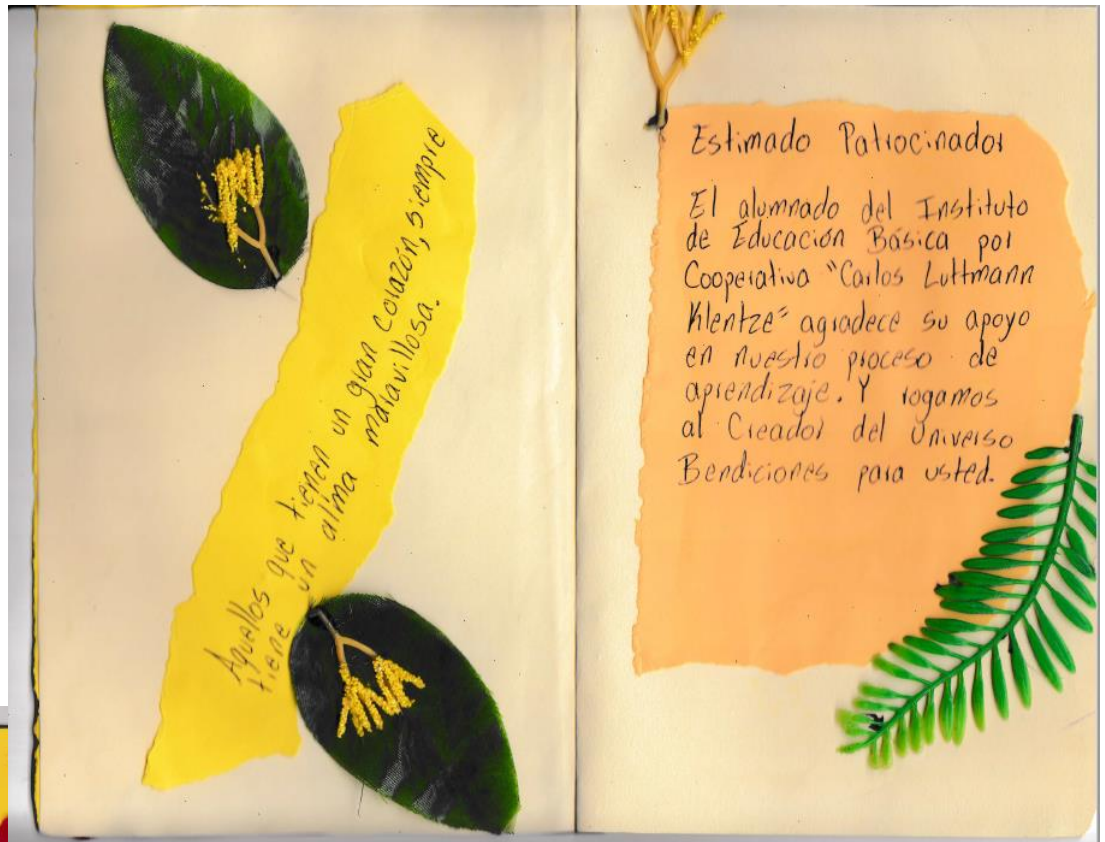 Aquellos que tienen un gran corazón, siempre
tiene un alma maravillosa.
Estimado Patrocinador
El alumnado del Instituto
de Educación Básica por
Cooperativa "Carlos Luttmann
Klentze" agradece su apoyo
en nuestro proceso de
aprendizaje. Y rogamos
al Creador del Universo
Bendiciones para usted.